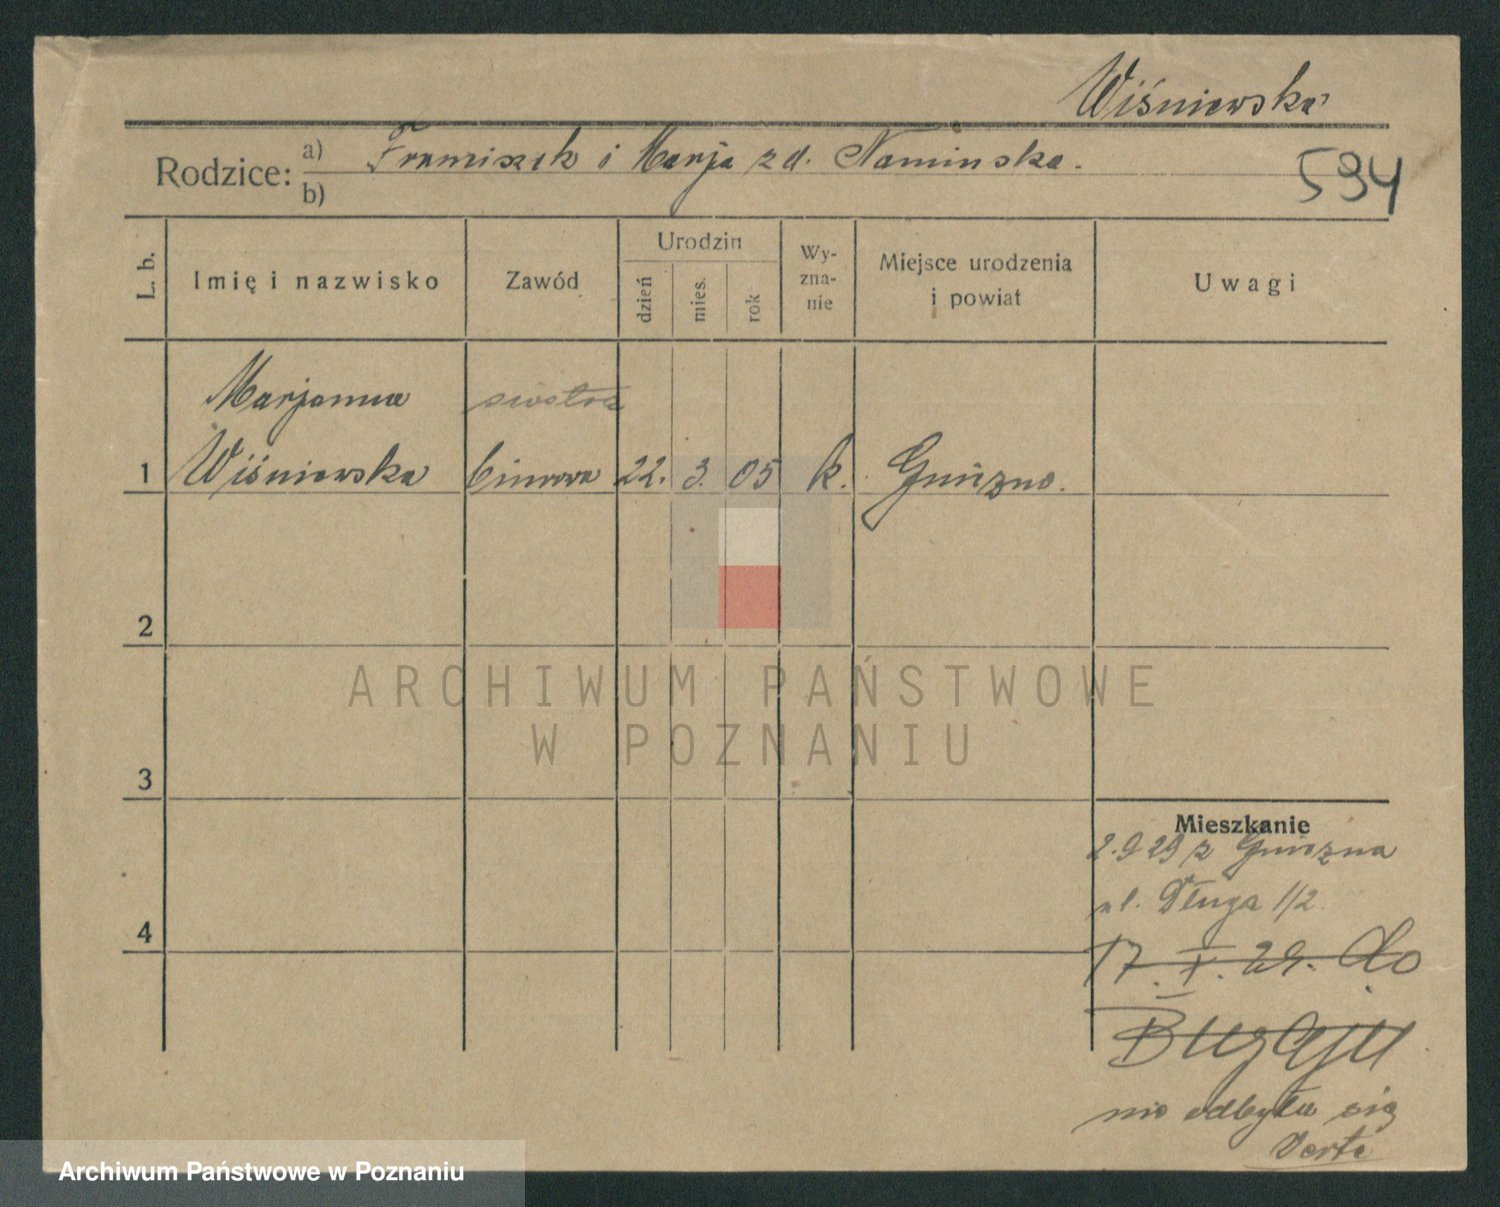 Wiśniewska
Rodzice: a) Franciszek i Marja z d. Namińska.
b)
594
L. b. Imię i nazwisko Zawód Urodzin dzień mies. rok Wyznanie Miejsce urodzenia i powiat Uwagi
Marjanna siostra
1 Wiśniewska biurowa 22. 3. 05 k. Gniezno.
2
3
4
ARCHIWUM PAŃSTWOWE
W POZNANIU
Mieszkanie
2.9 29 z Gniezna
ul. Długa 1/2.
17. X. 29. do
nie odbyła się
Verte
Archiwum Państwowe w Poznaniu